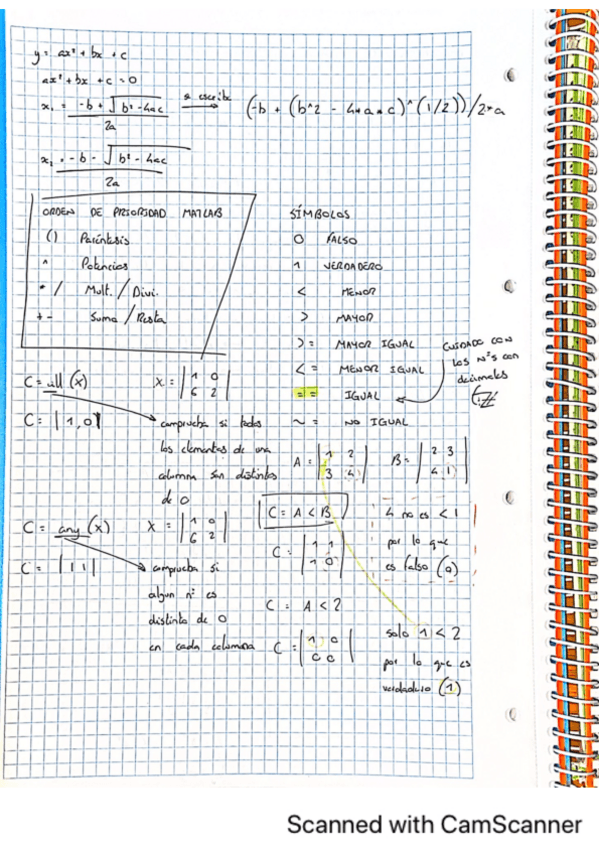 y = ax² + bx + c
ax² + bx + c = 0
x₁ = -b + √b² - 4ac / 2a
se escribe
(-b + (b^2 - 4*a*c)^(1/2))/2*a
x₂ = -b - √b² - 4ac / 2a
ORDEN DE PRIORIDAD MATLAB
() Paréntesis
^ Potencias
* / Mult. / Divi.
+ - Suma / Resta
SÍMBOLOS
0 FALSO
1 VERDADERO
< MENOR
> MAYOR
>= MAYOR IGUAL
<= MENOR IGUAL
== IGUAL
~= NO IGUAL
CUIDADO CON
los Nºs con
decimales
C = all (x)
X = |1 0|
|6 2|
C = |1, 0|
comprueba si todos
los elementos de una
columna son distintos
de 0
C = any (x)
X = |1 0|
|6 2|
C = |1 1|
comprueba si
algun nº es
distinto de 0
en cada columna
A = |1 2|
|3 4|
B = |2 3|
|4 1|
C = A < B
C = |1 1|
|1 0|
4 no es < 1
por lo que
es falso (0)
C = A < 2
C = |1 0|
|0 0|
solo 1 < 2
por lo que es
verdadero (1)
Scanned with CamScanner